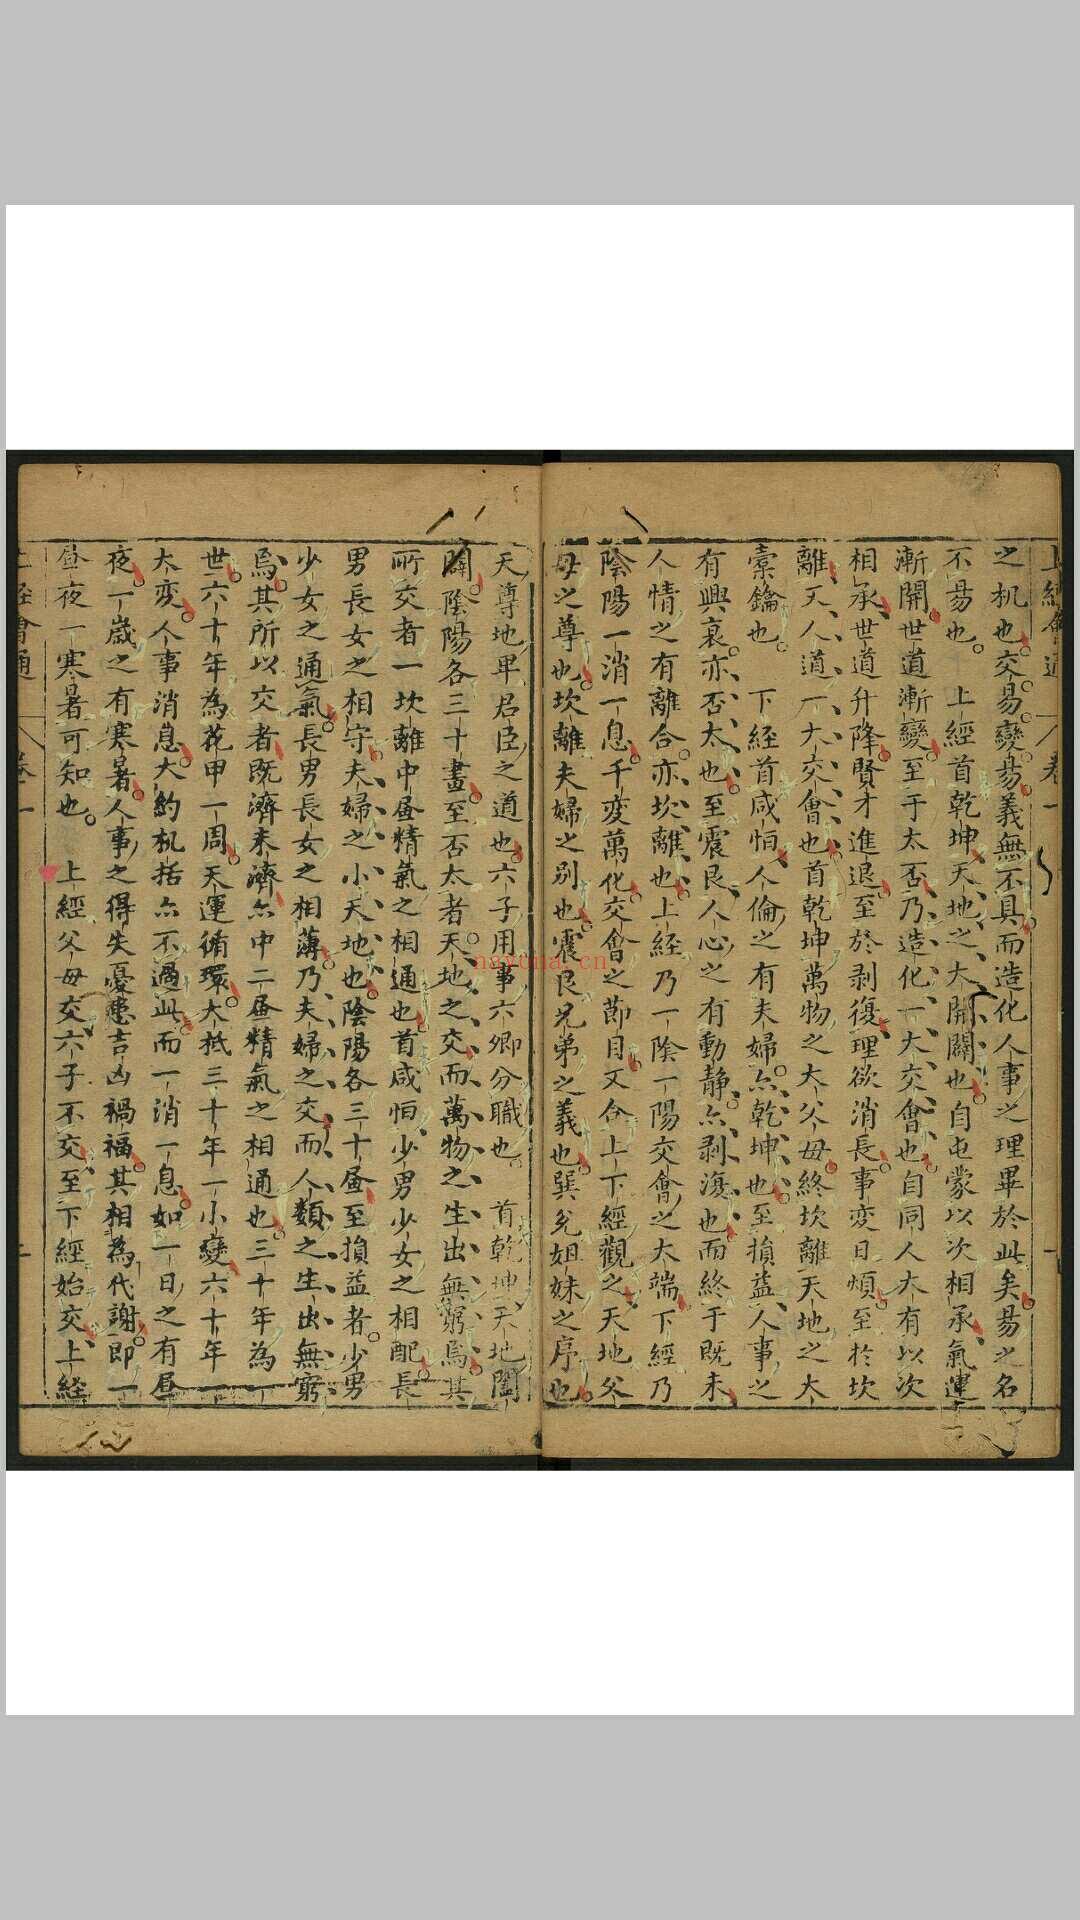 上經會通 卷一
之机也交易變易義無不具而造化人事之理畢於此矣易之名
不易也 上經首乾坤天地之大開闢也自屯蒙以次相承氣運
漸開世道漸變至于太否乃造化一大交會也自同人大有以次
相承世道升降賢才進退至於剥復理欲消長事変日煩至於坎
離天人道一大交會也首乾坤萬物之大父毋終坎離天地之大
橐鑰也 下經首咸恒人倫之有夫婦亦乾坤也至損益人事之
有興衰亦否太也至震艮人心之有動静亦剥復也而終于既未
人情之有離合亦坎離也上經乃一陰一陽交會之大端下經乃
陰陽一消一息千变萬化交會之節目又合上下經觀之天地父
毋之尊也坎離夫婦之别也震艮兄弟之義也巽兌姐妹之序也
天尊地卑君臣之道也六子用事六卿分職也 首乾坤天地闔
闢陰陽各三十畫至否太者天地之交而萬物之生出無窮焉其
所交者一坎離中昼精氣之相通也首咸恒少男少女之相配長
男長女之相守夫婦之小天地也陰陽各三十昼至損益者少男
少女之通氣長男長女之相薄乃夫婦之交而人類之生出無窮
焉其所以交者既濟未濟亦中二昼精氣之相通也三十年為一
世六十年為花甲一周天運循環大抵三十年一小變六十年一
大变人事消息大約机括亦不過此而一消一息如一日之有昼
夜一歲之有寒暑人事之得失憂患吉凶禍福其相為代謝即一
昼夜一寒暑可知也 上經父毋交六子不交至下經始交上經
上經會通 卷一